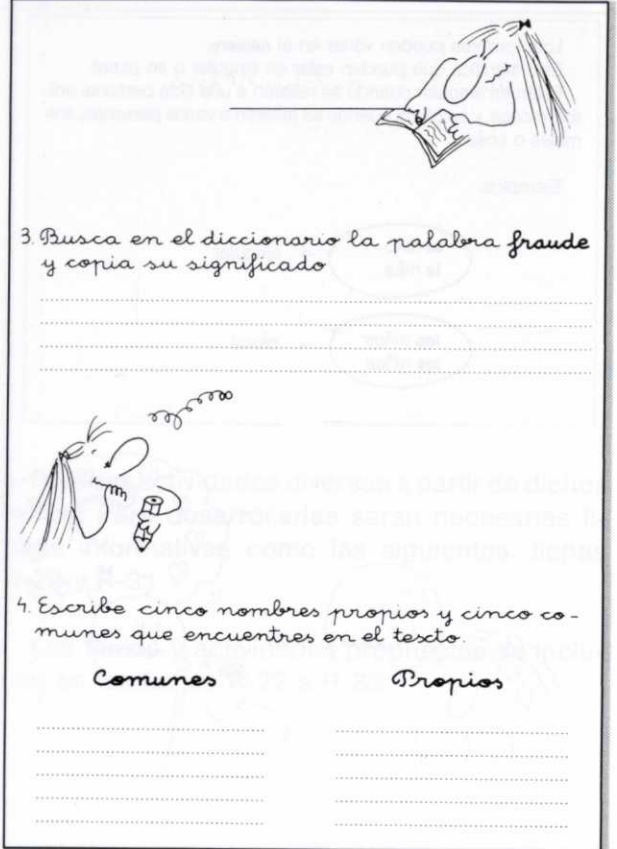 3. Busca en el diccionario la palabra fraude
y copia su significado
4. Escribe cinco nombres propios y cinco co-
munes que encuentres en el texto.
Comunes Propios